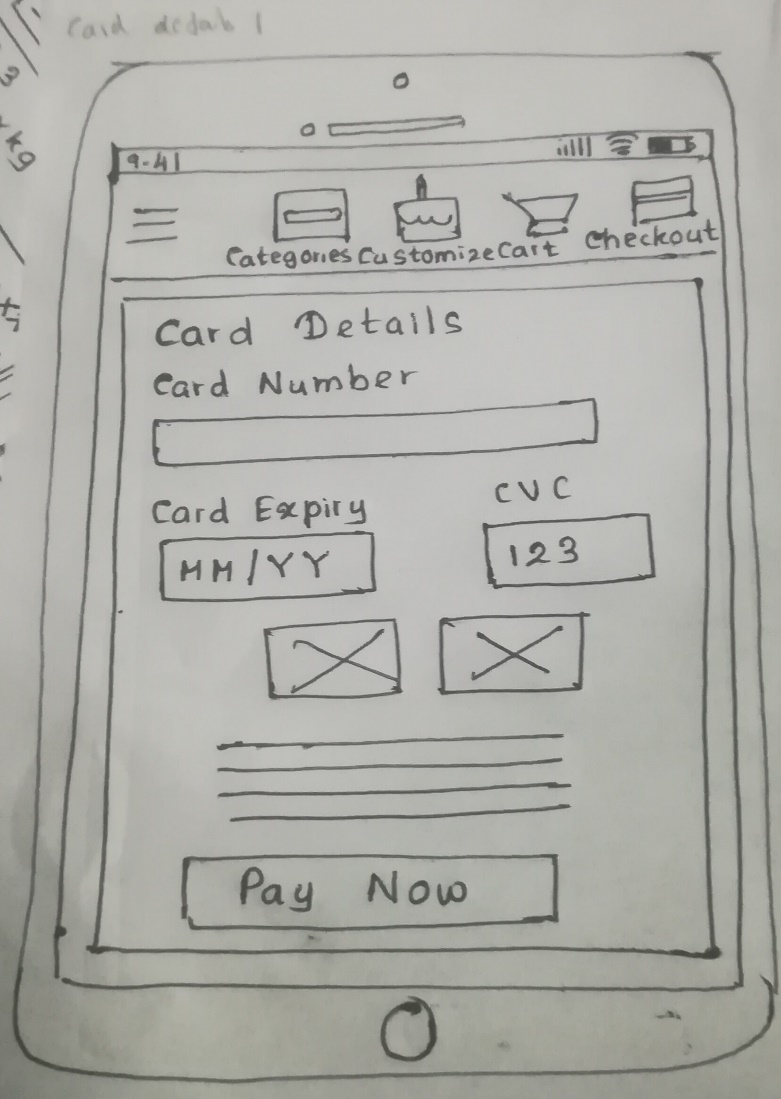 Card
9-41
Categories Customize Cart Checkout
Card Details
Card Number
Card Expiry CVC
MM/YY 123
Pay Now
kg